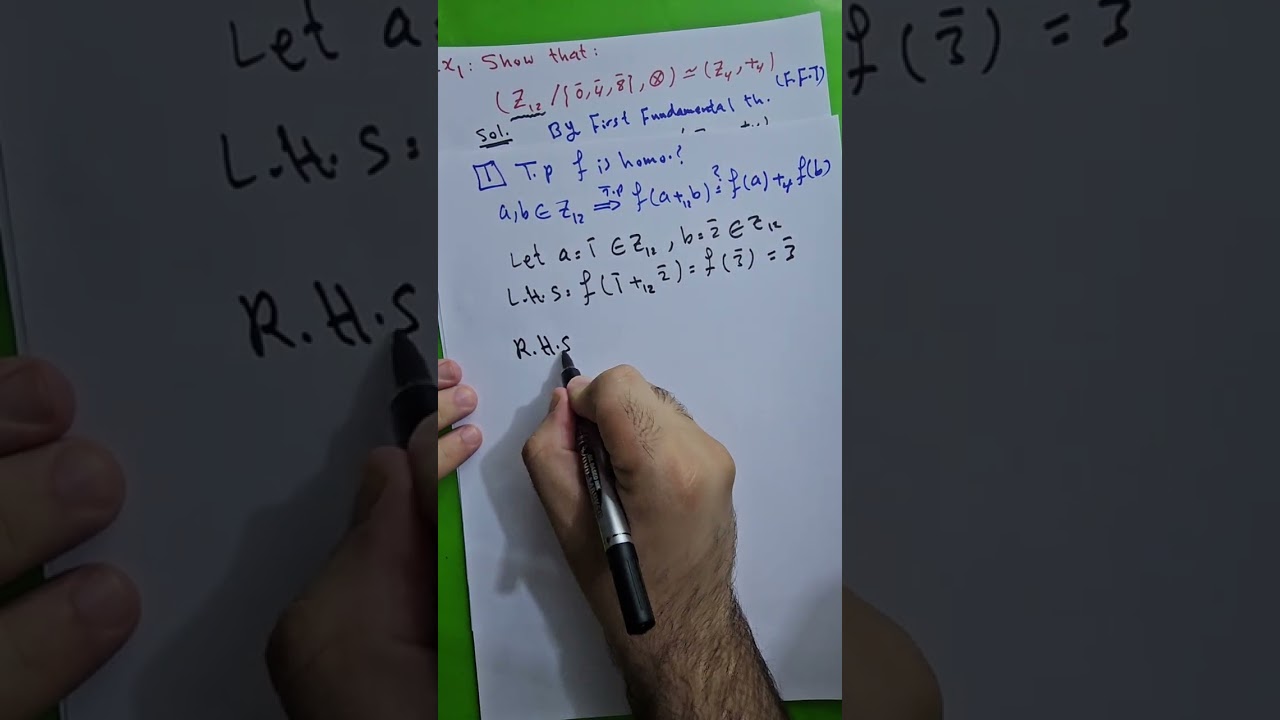 x₁: Show that:
(Z₁₂ / {0̄, 4̄, 8̄}, ⊗) ≃ (Z₄, +₄)
Sol. By First Fundamental th. (F.F.T)
1 T.p f is homo.?
a,b ∈ Z₁₂ ⟹ T.p f(a +₁₂ b) ≟ f(a) +₄ f(b)
Let a = 1̄ ∈ Z₁₂, b = 2̄ ∈ Z₁₂
L.H.S = f(1̄ +₁₂ 2̄) = f(3̄) = 3̄
R.H.S